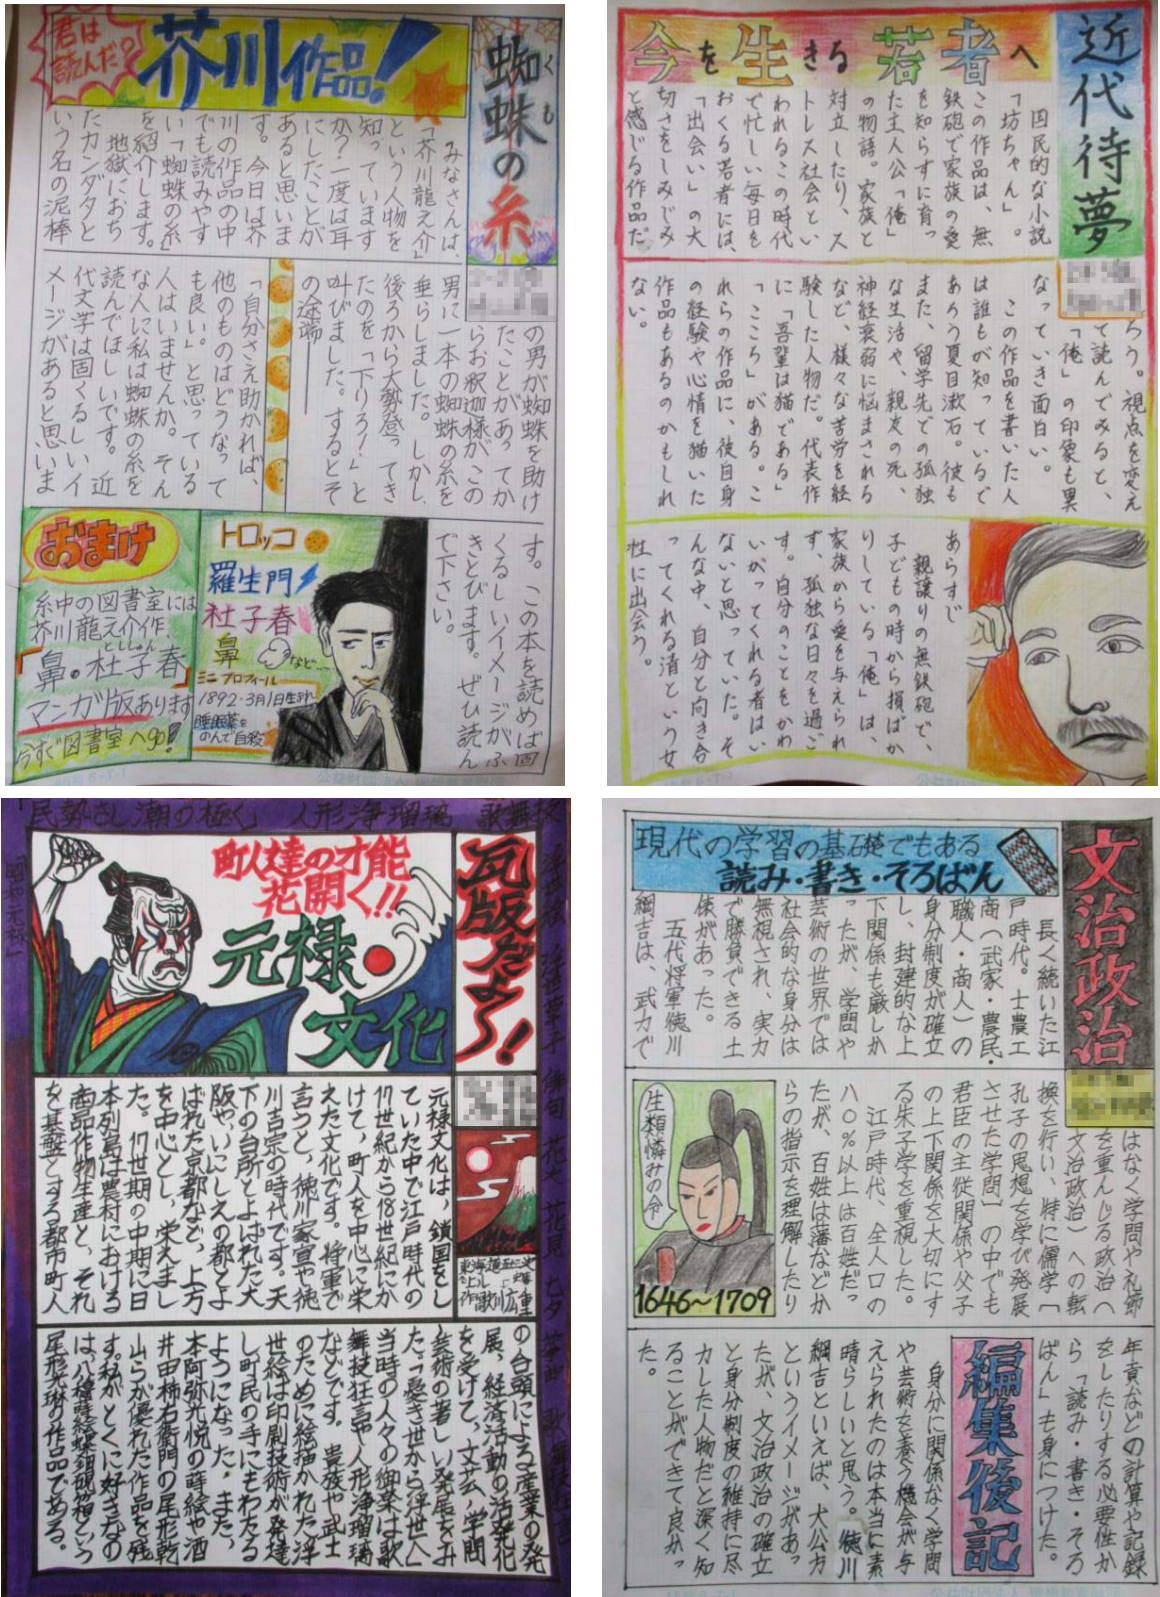 君は
読んだ?
芥川作品!
蜘蛛の糸
くも
みなさんは、
「芥川龍之介」
という人物を
知っています
か?一度は耳
にしたことが
あると思いま
す。今日は芥
川の作品の中
でも読みやす
い「蜘蛛の糸」
を紹介します。
地獄におち
たカンダタと
いう名の泥棒
の男が蜘蛛を助け
たことがあってか
らお釈迦様がこの
男に一本の蜘蛛の糸を
垂らしました。しかし、
後ろから大勢登ってき
たのを「下りろ!」と
叫びました。するとそ
の途端――
「自分さえ助かれば、
他のものはどうなって
も良い。」と思っている
人はいませんか。そん
な人に私は蜘蛛の糸を
読んでほしいです。近
代文学は固くるしいイ
メージがあると思いま
す。この本を読めば固
くるしいイメージがふ
きとびます。ぜひ読ん
で下さい。
トロッコ
羅生門
杜子春
鼻
など…
ミニプロフィール
1892・3月1日生まれ
睡眠薬を
のんで自殺
おまけ
糸中の図書室には
芥川龍之介作、
とししゅん
鼻。杜子春
マンガ版あります
今すぐ図書室へGO!
今を生きる若者へ
近代待夢
国民的な小説
「坊ちゃん」。
この作品は、無
鉄砲で家族の愛
を知らずに育っ
た主人公「俺」
の物語。家族と
対立したり、ス
トレス社会とい
われるこの時代
で忙しい毎日を
おくる若者には、
「出会い」の大
切さをしみじみ
と感じる作品だ
ろう。視点を変え
て読んでみると、
「俺」の印象も異
なっていき面白い。
この作品を書いた人
は誰もが知っているで
あろう夏目漱石。彼も
また、留学先での孤独
な生活や、親友の死、
神経衰弱に悩まされる
など、様々な苦労を経
験した人物だ。代表作
に「吾輩は猫である」
「こころ」がある。こ
れらの作品に、彼自身
の経験や心情を描いた
作品もあるのかもしれ
ない。
あらすじ
親譲りの無鉄砲で、
子どもの時から損ばか
りしている「俺」は、
家族から愛を与えられ
ず、孤独な日々を過ご
す。自分のことをかわ
いがってくれる者はい
ないと思っていた。そ
んな中、自分と向き合
ってくれる清という女
性に出会う。
人形浄瑠璃 歌舞伎
瓦版だよ~!
町人達の才能
花開く!!
元禄
文化
元禄文化は、鎖国をし
ていた中で江戸時代の
17世紀から18世紀にか
けて、町人を中心に栄
えた文化です。将軍で
言うと、徳川家宣や徳
川吉宗の時代です。天
下の台所とよばれた大
阪や、いにしえの都とよ
ばれた京都など、上方
を中心とし、栄えまし
た。17世期の中期に日
本列島は農村における
商品作物生産と、それ
を基盤とする都市町人
の台頭による産業の発
展、経済活動の活発化
を受けて、文芸、学問
、芸術の著しい発展をみ
た。「憂き世から浮世へ」
当時の人々の御楽は歌
舞伎狂言や人形浄瑠璃
などです。貴族や武士
のために絵描かれた浮
世絵は印刷技術が発達
し町民の手にもわたる
ようになった。また、
本阿弥光悦の蒔絵や酒
井田柿右衛門の尾形乾
山らが優れた作品を残
す。私がとくに好きなの
は、八橋蒔絵螺鈿硯箱という
尾形光琳の作品である。
現代の学習の基礎でもある
読み・書き・そろばん
文治政治
長く続いた江
戸時代。士農工
商(武家・農民・
職人・商人)の
身分制度が確立
し、封建的な上
下関係も厳しか
ったが、学問や
芸術の世界では
社会的な身分は
無視され、実力
で勝負できる土
俵があった。
五代将軍徳川
綱吉は、武力で
はなく学問や礼節
を重んじる政治(
文治政治)への転
換を行い、特に儒学[
孔子の思想を学び発展
させた学問]の中でも
君臣の主従関係や父子
の上下関係を大切にす
る朱子学を重視した。
江戸時代、全人口の
八〇%以上は百姓だっ
たが、百姓は藩などか
らの指示を理解したり
生類憐みの令
1646~1709
年貢などの計算や記録
をしたりする必要性か
ら「読み・書き・そろ
ばん」も身につけた。
編集後記
身分に関係なく学問
や芸術を養う機会が与
えられたのは本当に素
晴らしいと思う。徳川
綱吉といえば、犬公方
というイメージがあっ
たが、文治政治の確立
と身分制度の維持に尽
力した人物だと深く知
ることができて良かっ
た。